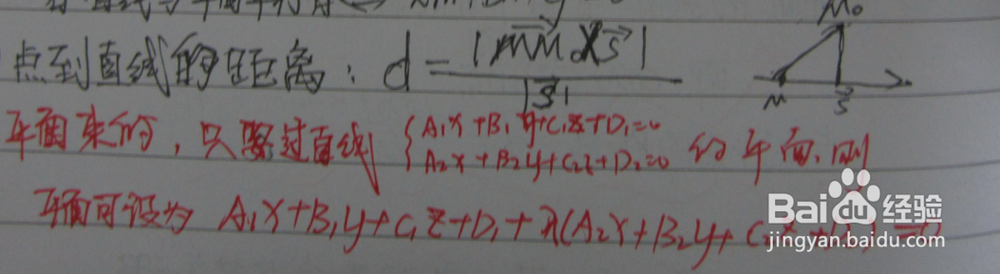 点到直线的距离：d = |MM₀×s| / |s|
M₀
M
s
平面束的，只要过直线 { A₁x+B₁y+C₁z+D₁=0
A₂x+B₂y+C₂z+D₂=0 的平面，则
平面可设为 A₁x+B₁y+C₁z+D₁+λ(A₂x+B₂y+
Baidu经验
jingyan.baidu.com